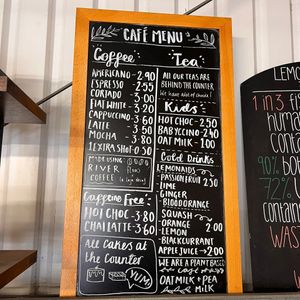 CAFÉ MENU
Coffee
AMERICANO - 2.90
ESPRESSO - 2.55
CORTADO - 3.00
FLAT WHITE - 3.20
CAPPUCCINO - 3.60
LATTE - 3.50
MOCHA - 3.80
EXTRA SHOT - 0.50
MADE USING
RIVER
COFFEE
Caffeine Free
HOT CHOC - 3.80
CHAI LATTE - 3.60
All Cakes at
the Counter
YUM
Tea
ALL OUR TEAS ARE
BEHIND THE COUNTER
We have lots of choice!
Kids
HOT CHOC - 2.50
BABYCCINO - 2.40
OAT MILK - 1.00
Cold Drinks
LEMONAIDS
- PASSIONFRUIT 2.50
- LIME
- GINGER
- BLOOD ORANGE
SQUASH
- ORANGE 2.00
- LEMON
- BLACKCURRANT
APPLE JUICE - 2.00
WE ARE A PLANT BASED
cafe so use
OATMILK + PEA
MILK
LEMO
1 in 3
human
conta
90% bo
72%
contain
WAS